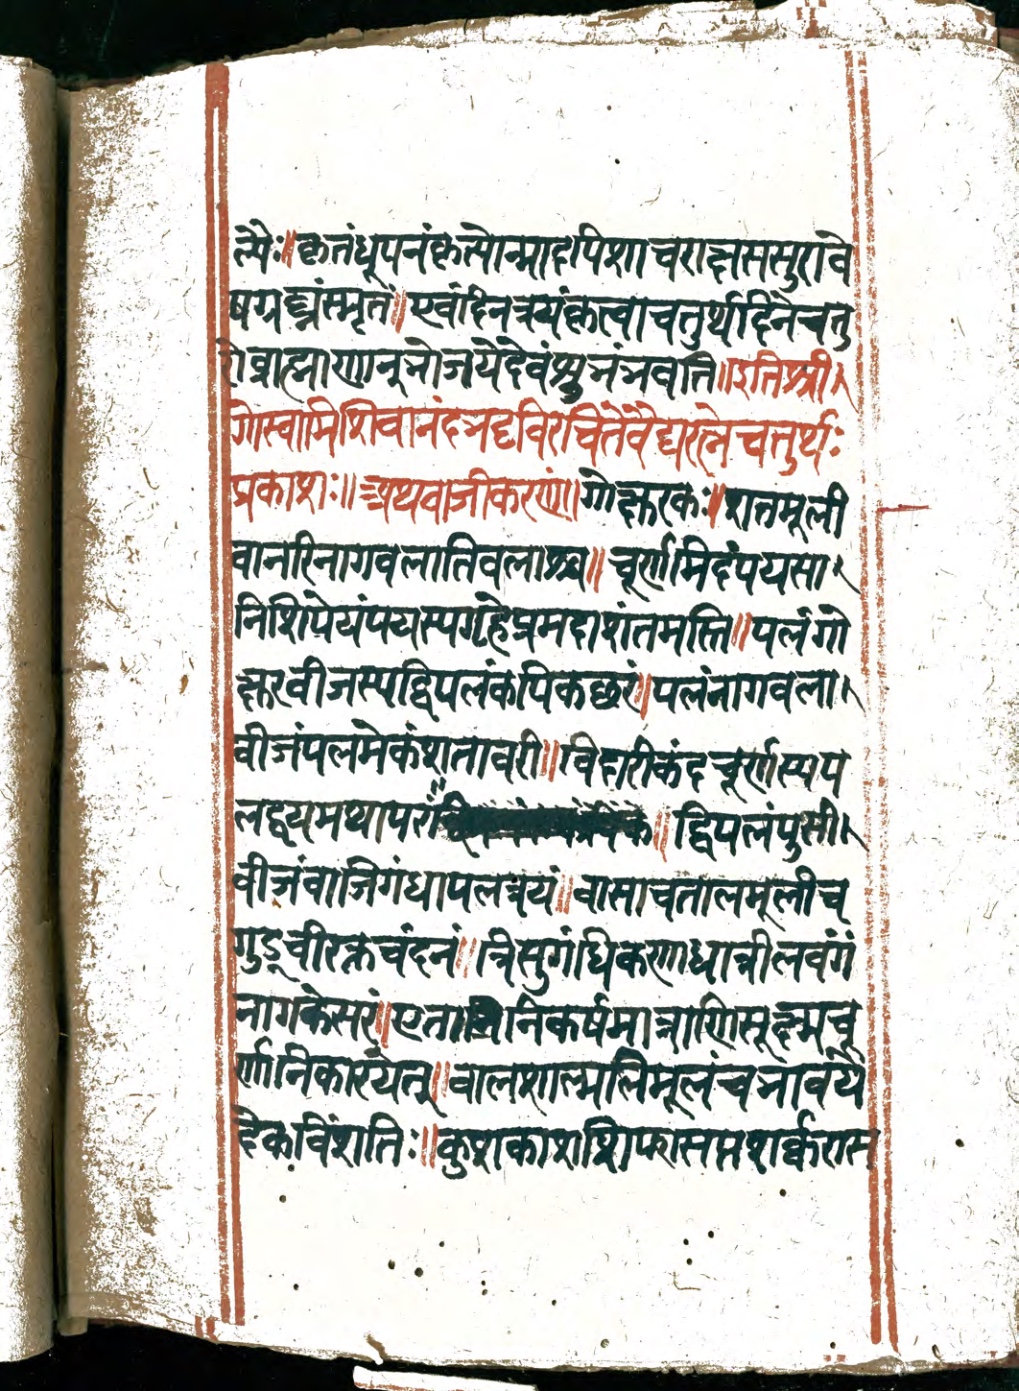 त्यैः॥ कृतंधूपनंकृत्योन्मादपिशाचराक्षससुरावे
षग्रहघ्नंस्मृतं॥ एवंदिनत्रयंकृत्वाचतुर्थदिनेचतु
रोब्राह्माणान्भोजयेदेवंशुभंभवति॥ इतिश्री।
गोस्वामिशिवानंदभट्टविरचितेवैद्यरत्नेचतुर्थः
प्रकाशः॥ अथवाजीकरणं॥ गोक्षुरकः॥ शतमूली
वानरिनागवलातिवलाश्च॥ चूर्णमिदंपयसा।
निशिपेयंपयस्यगृहेप्रमदाशंतमस्ति॥ पलंगो
क्षुरवीजस्यद्विपलंकपिकछुरं॥ पलंनागवला।
वीजंपलमेकंशतावरी॥ विदारीकंदचूर्णस्यप
लद्वयमथापरं॥ द्विपलंपुसी।
वीजंवाजिगंधापलत्रयं॥ वासाचतालमूलीच
गुडूचीरक्तचंदनं॥ त्रिसुगंधिकणाधात्रीलवंगं
नागकेसरं॥ एतानिकर्षमात्राणिसूक्ष्मचू
र्णानिकारयेत्॥ वालशाल्मलिमूलंचभावये
देकविंशतिः॥ कुशकाशशिफासप्तशर्क्करास